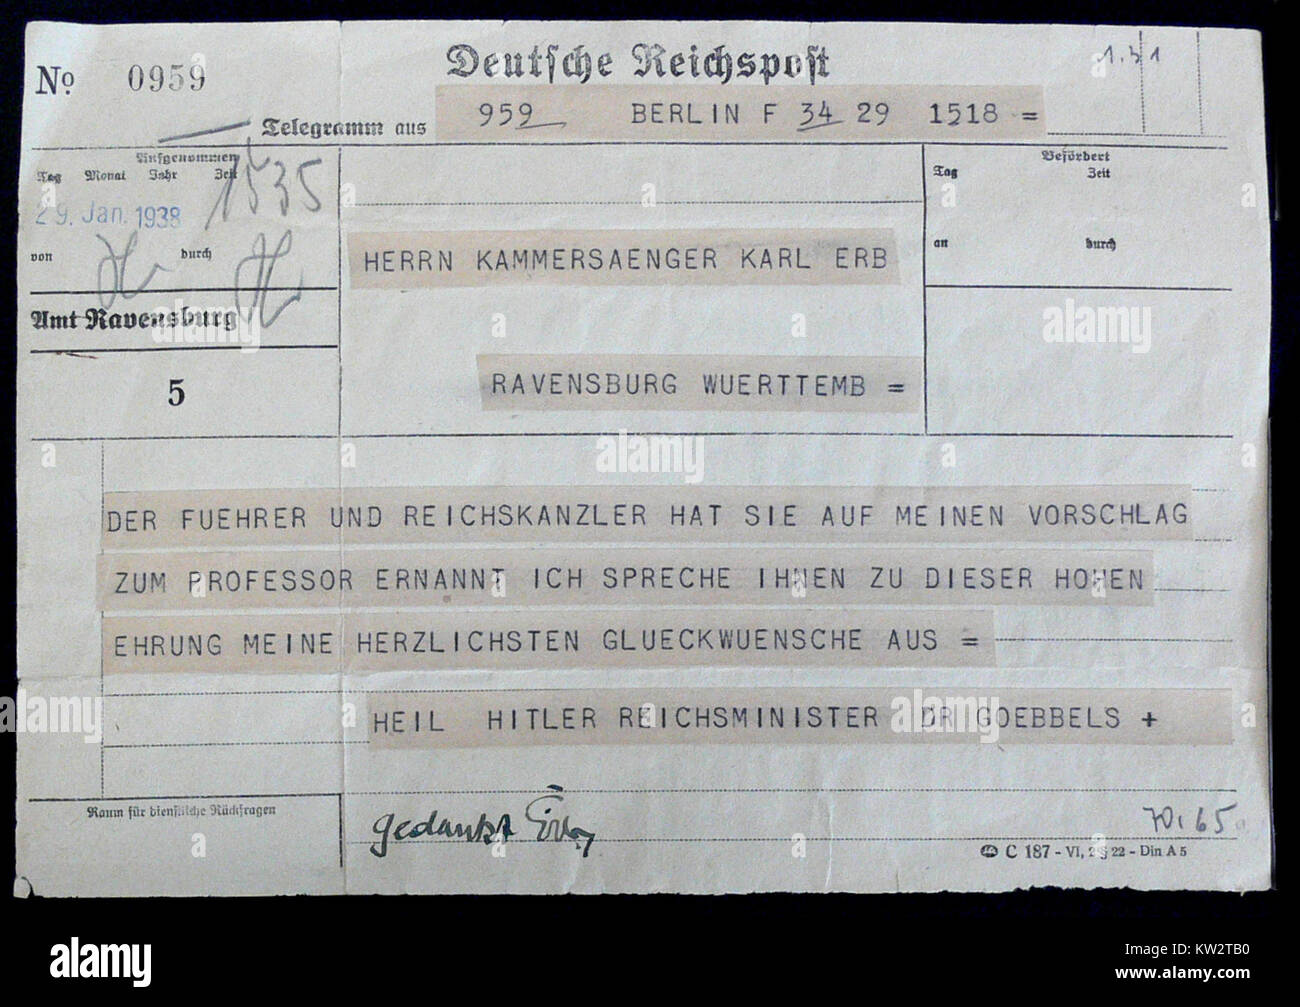 Deutsche Reichspost
1.31
No 0959
Telegramm aus
959 BERLIN F 34 29 1518 =
Aufgenommen
Tag Monat Jahr Zeit
29. Jan. 1938 1535
von durch
Amt Ravensburg
5
HERRN KAMMERSAENGER KARL ERB
RAVENSBURG WUERTTEMB =
Befördert
Tag Zeit
an durch
DER FUEHRER UND REICHSKANZLER HAT SIE AUF MEINEN VORSCHLAG
ZUM PROFESSOR ERNANNT ICH SPRECHE IHNEN ZU DIESER HOHEN
EHRUNG MEINE HERZLICHSTEN GLUECKWUENSCHE AUS =
HEIL HITLER REICHSMINISTER DR GOEBBELS +
Raum für dienstliche Rückfragen
gedankt
C 187 - VI, 2 § 22 - Din A 5
alamy
Image ID: KW2TB0
www.alamy.com